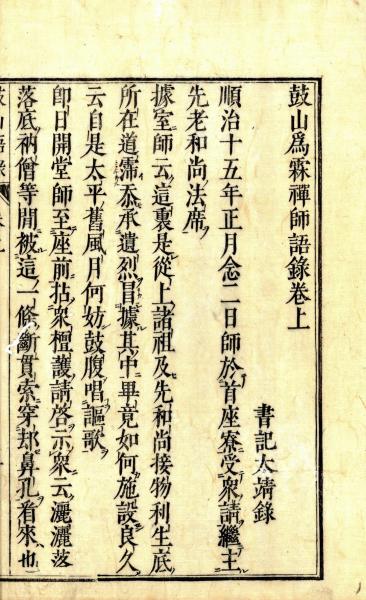 鼓山爲霖禪師語錄卷上
書記太靖錄
順治十五年正月念二日師於首座寮受衆請繼主
先老和尚法席
據室師云這裏是從上諸祖及先和尚接物利生底
所在道霈忝承遺烈冒據其中畢竟如何施設良久
云自是太平舊風月何妨鼓腹唱謳歌
卽日開堂師至座前拈衆檀護請啓示衆云灑灑落
落底衲僧等閒被這一條斷貫索穿却鼻孔看來也
鼓山語錄 卷上